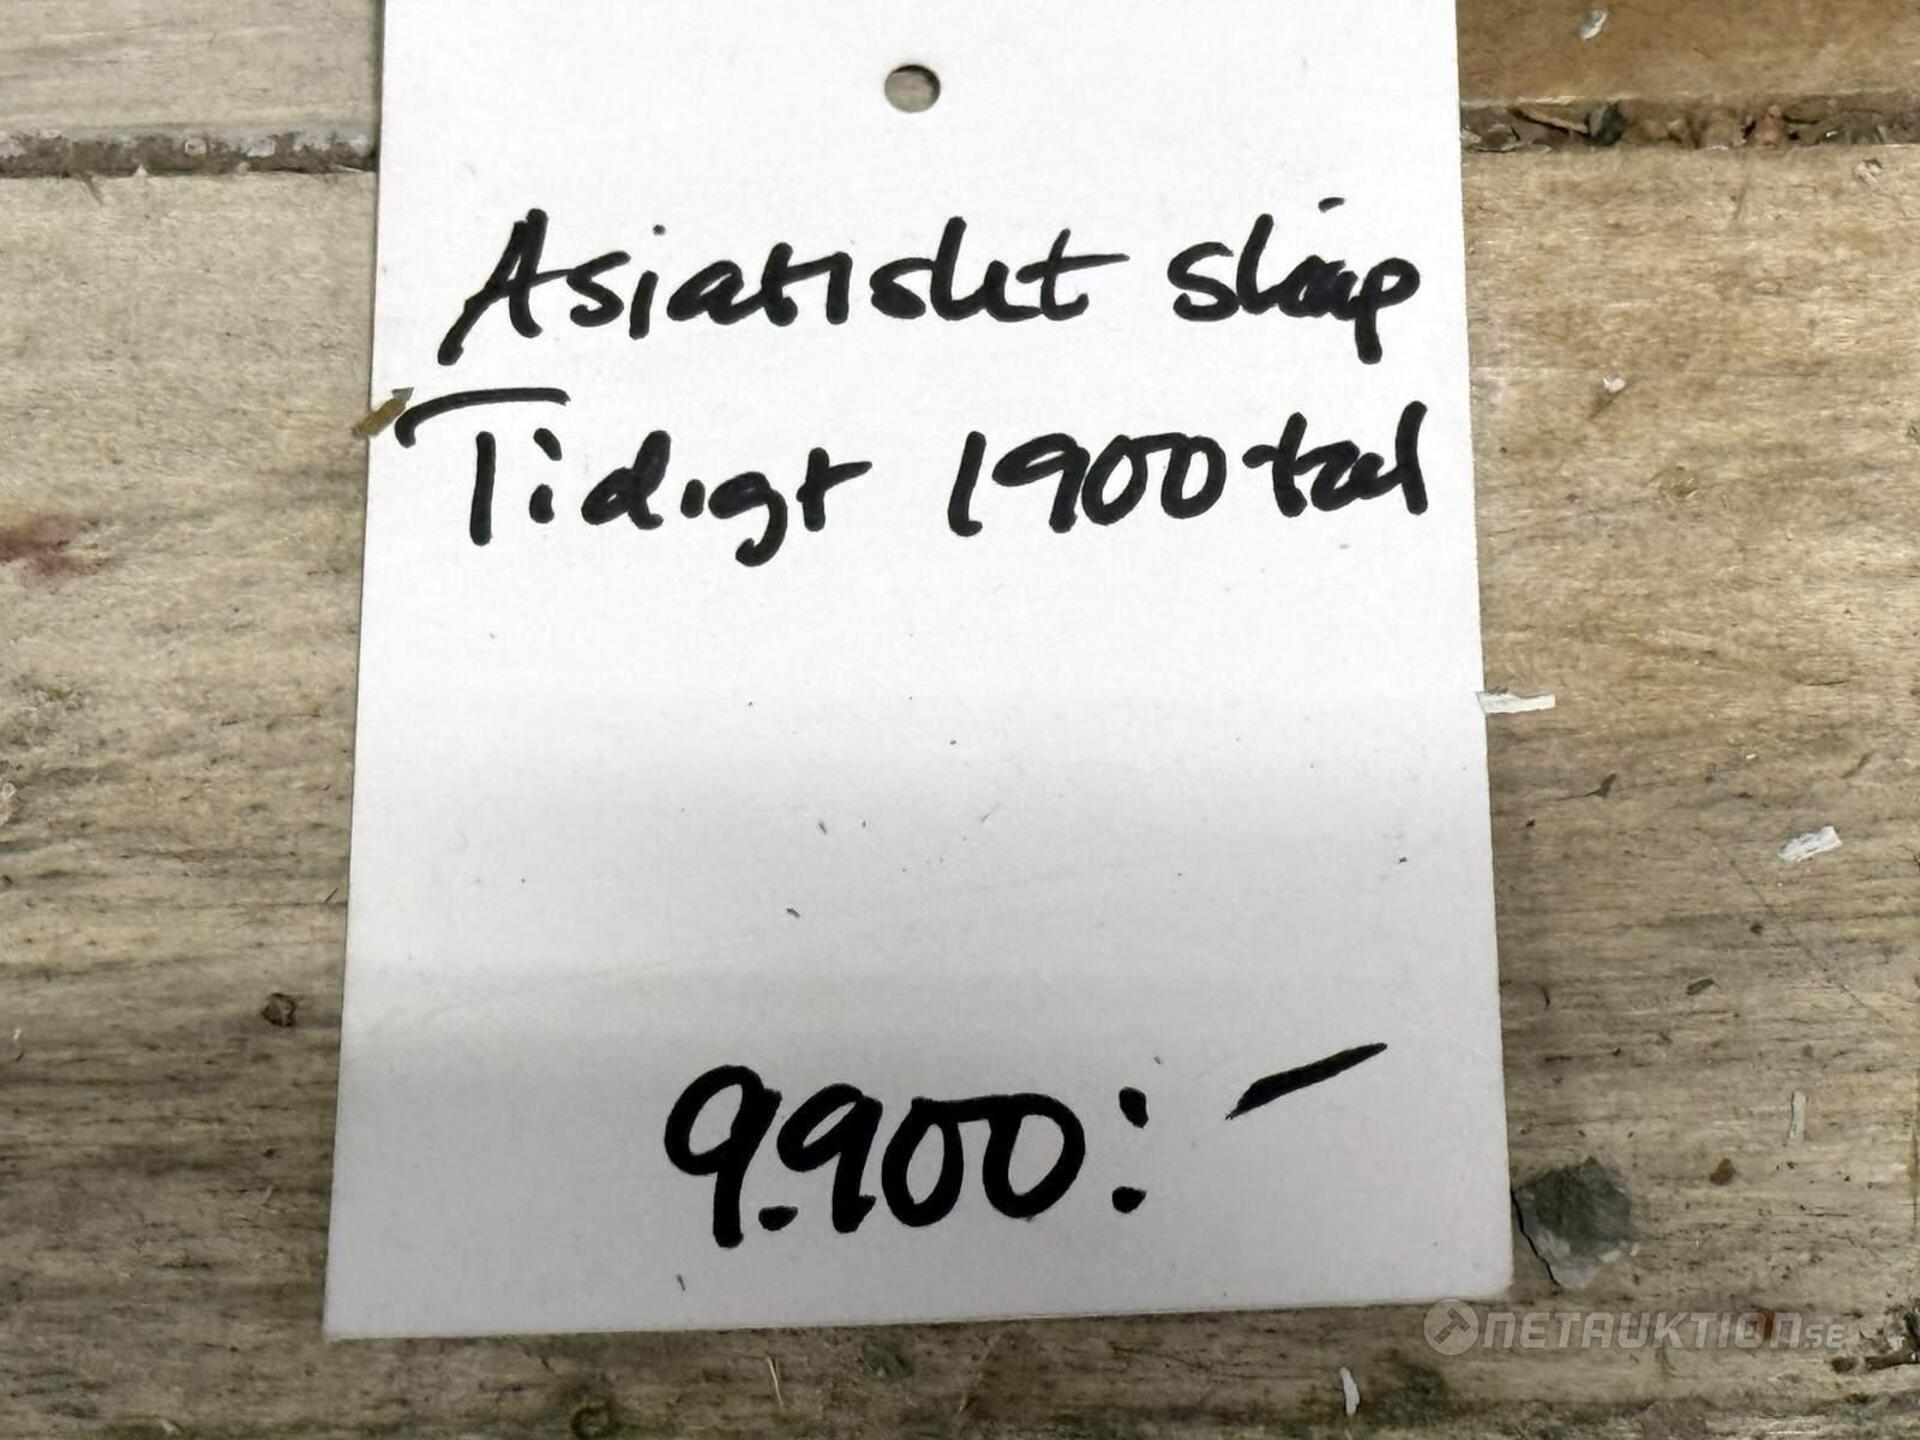 Asiatiskt skåp
Tidigt 1900tal
9.900:-
NETAUKTION.SE